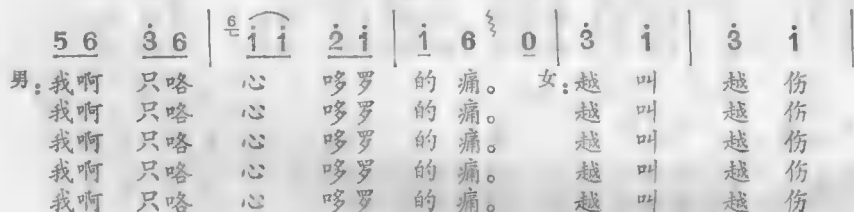 5 6 3̇ 6 | 6 1̇ 1̇ 2̇ 1̇ | 1̇ 6 0 | 3̇ 1̇ | 3̇ 1̇ |
男：我啊 只咯 心 哆罗 的 痛。 女：越 叫 越 伤
我啊 只咯 心 哆罗 的 痛。 越 叫 越 伤
我啊 只咯 心 哆罗 的 痛。 越 叫 越 伤
我啊 只咯 心 哆罗 的 痛。 越 叫 越 伤
我啊 只咯 心 哆罗 的 痛。 越 叫 越 伤